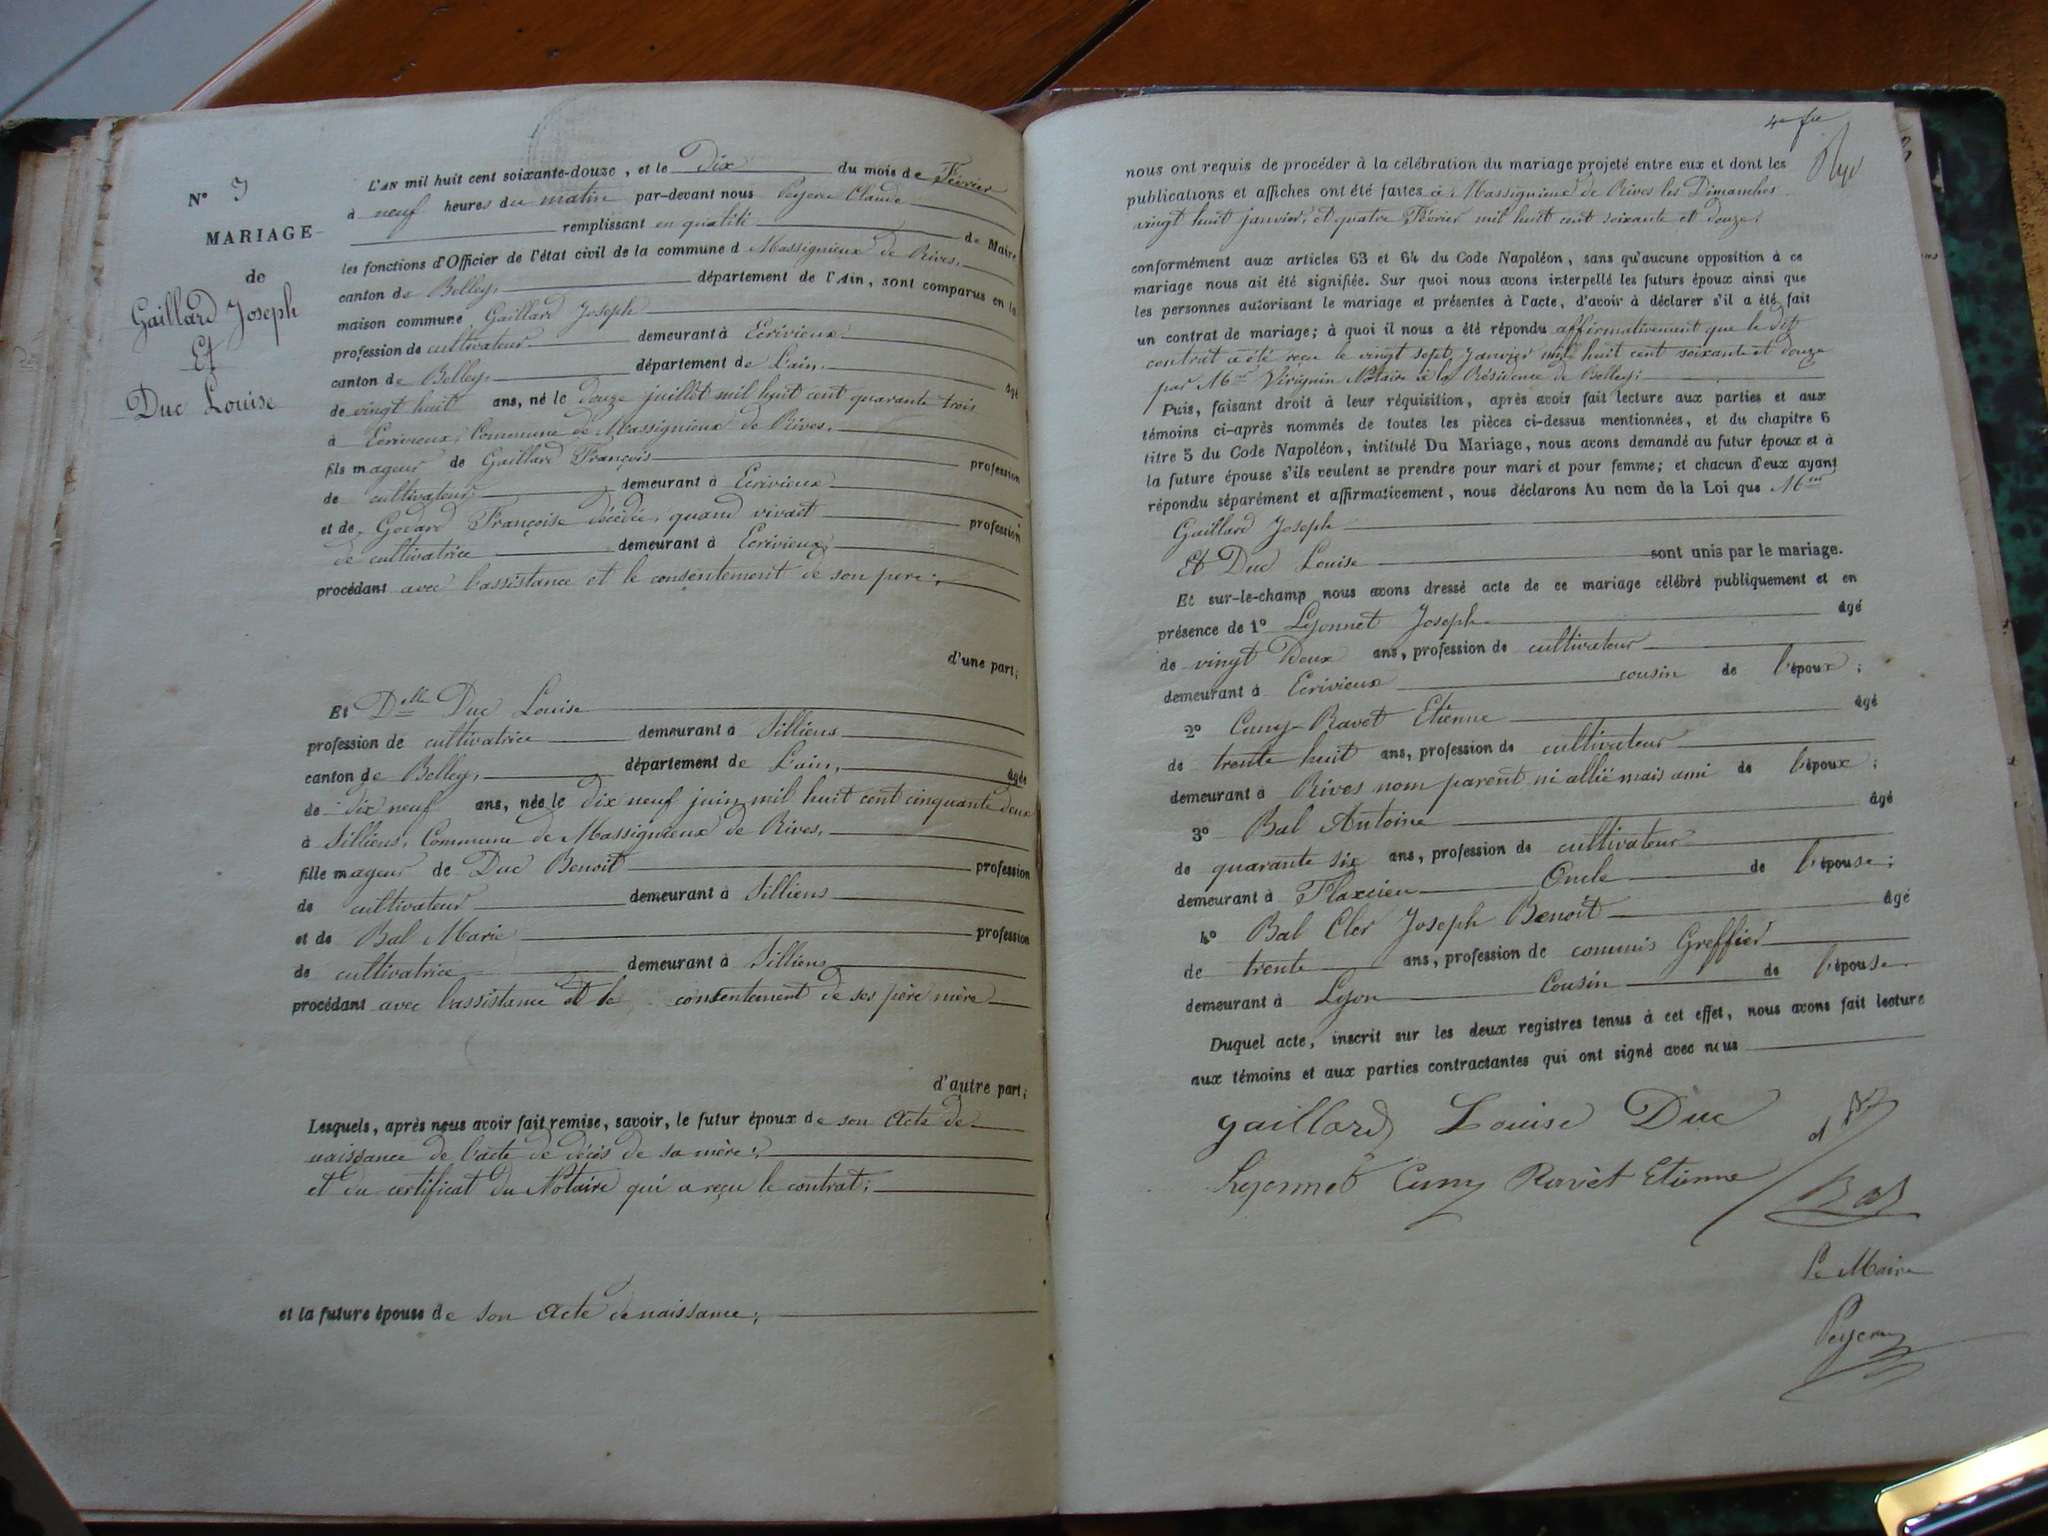 N° 3
MARIAGE
de
Gaillard Joseph
Et
Duc Louise
L'AN mil huit cent soixante-douze, et le Dix du mois de Février
à neuf heures du matin par-devant nous Peyera Claude
remplissant en qualité de Maire
les fonctions d'Officier de l'état civil de la commune d Massignieux de Rives,
canton de Belley, département de l'Ain, sont comparus en la
maison commune Gaillard Joseph
profession de cultivateur demeurant à Ecrivieux
canton de Belley, département de L'ain, âgé
de vingt huit ans, né le douze juillet mil huit cent quarante trois
à Ecrivieux, Commune de Massignieux de Rives,
fils mageur de Gaillard François profession
de cultivateur demeurant à Ecrivieux
et de Godard Françoise décédée, quand vivait profession
de cultivatrice demeurant à Ecrivieux,
procédant avec l'assistance et le consentement de son pere;
d'une part;
Et Delle Duc Louise
profession de cultivatrice demeurant à Silliens
canton de Belley, département de L'ain, âgée
de dix neuf ans, née le dix neuf juin mil huit cent cinquante deux
à Silliens, Commune de Massignieux de Rives,
fille mageur de Duc Benoit profession
de cultivateur demeurant à Silliens
et de Bal Marie profession
de cultivatrice demeurant à Silliens
procédant avec l'assistance et le consentement de ses père mère
d'autre part;
Lesquels, après nous avoir fait remise, savoir, le futur époux de son Acte de
naissance de l'acte de décès de sa mère;
et du certificat du Notaire qui a reçu le contrat;
et la future épouse de son Acte de naissance;
nous ont requis de procéder à la célébration du mariage projeté entre eux et dont les
publications et affiches ont été faites à Massignieux de Rives les Dimanches
vingt huit janvier, et quatre Février mil huit cent soixante et douze,
conformément aux articles 63 et 64 du Code Napoléon, sans qu'aucune opposition à ce
mariage nous ait été signifiée. Sur quoi nous avons interpellé les futurs époux ainsi que
les personnes autorisant le mariage et présentes à l'acte, d'avoir à déclarer s'il a été fait
un contrat de mariage; à quoi il nous a été répondu affirmativement que le dit
contrat a été reçu le vingt sept Janvier mil huit cent soixante et douze
par Mtre Virignin Notaire à la Résidence de Belley;
Puis, faisant droit à leur réquisition, après avoir fait lecture aux parties et aux
témoins ci-après nommés de toutes les pièces ci-dessus mentionnées, et du chapitre 6
titre 5 du Code Napoléon, intitulé Du Mariage, nous avons demandé au futur époux et à
la future épouse s'ils veulent se prendre pour mari et pour femme; et chacun d'eux ayant
répondu séparément et affirmativement, nous déclarons Au nom de la Loi que
Gaillard Joseph
Et Duc Louise sont unis par le mariage.
Et sur-le-champ nous avons dressé acte de ce mariage célébré publiquement et en
présence de 1° Lyonnet Joseph âgé
de vingt Deux ans, profession de cultivateur
demeurant à Ecrivieux cousin de l'époux;
2° Cuny-Ravet Etienne âgé
de trente huit ans, profession de cultivateur
demeurant à Rives nom parent ni allié mais ami de l'époux;
3° Bal Antoine âgé
de quarante six ans, profession de cultivateur
demeurant à Flaxieu Oncle de l'épouse;
4° Bal Cler Joseph Benoît âgé
de trente ans, profession de commis Greffier
demeurant à Lyon Cousin de l'épouse
Duquel acte, inscrit sur les deux registres tenus à cet effet, nous avons fait lecture
aux témoins et aux parties contractantes qui ont signé avec nous
gaillard Louise Duc
Lyonnet Cuny Ravet Etienne Bal
Le Maire
Peyera